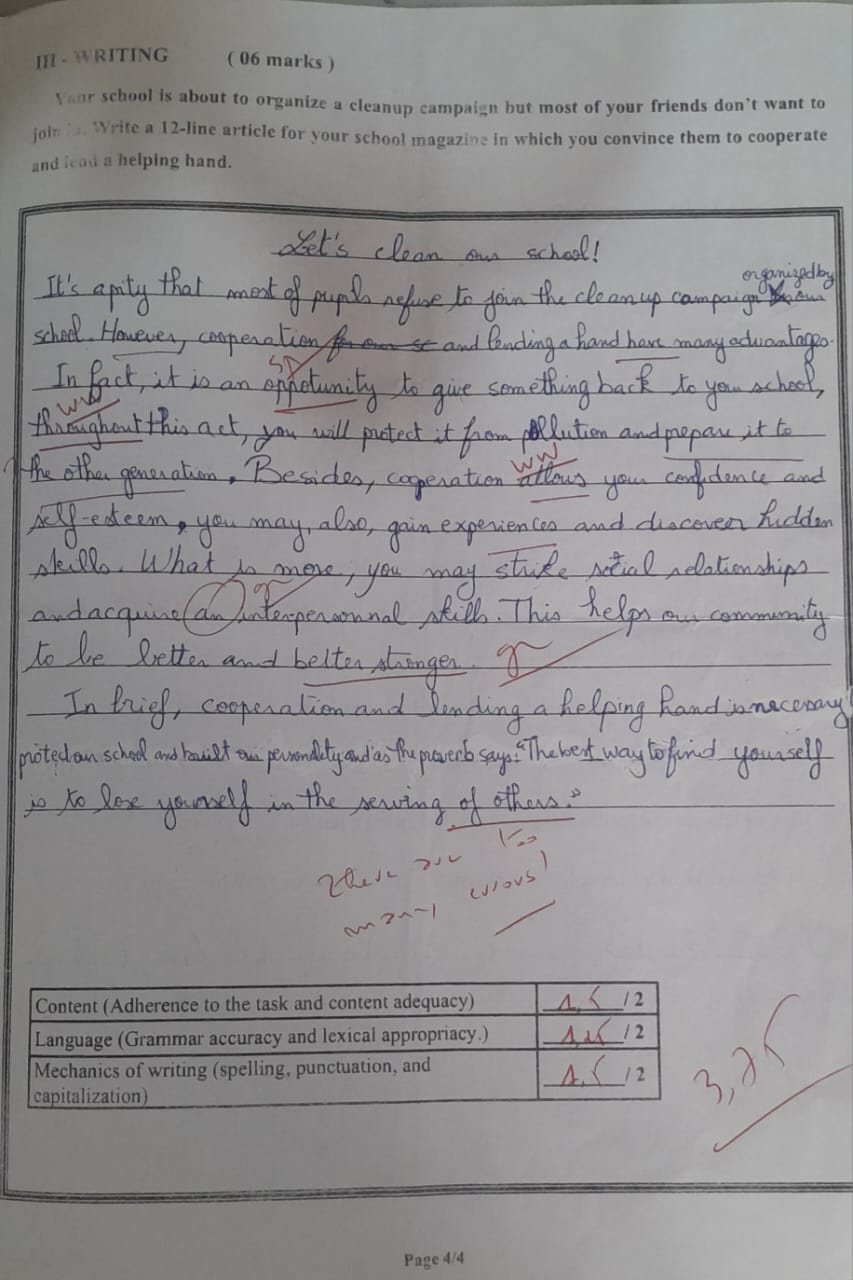 III - WRITING ( 06 marks )
Your school is about to organize a cleanup campaign but most of your friends don't want to
join . Write a 12-line article for your school magazine in which you convince them to cooperate
and lend a helping hand.
Let's clean our school!
organized by
It's apity that most of pupils refuse to join the cleanup campaign our
school. However, cooperation for our sc and lending a hand have many advantages.
SP
In fact, it is an oppotunity to give something back to your school,
WW
throughout this act, you will protect it from pollution and prepare it to
WW
the other generation. Besides, cooperation allows your confidence and
self-esteem, you may, also, gain experiences and discover hidden
skills. What is more, you may strike social relationships
and acquire an interpersonnal skills. This helps our community
to be better and better stronger.
In brief, cooperation and lending a helping hand is necessary
protect our school and built our personality and as the proverb says: "The best way to find yourself
is to lose yourself in the serving of others."
There are too
many errors!
Content (Adherence to the task and content adequacy) 1,5 /2
Language (Grammar accuracy and lexical appropriacy.) /2
Mechanics of writing (spelling, punctuation, and
capitalization) 1,5 /2
3,25
Page 4/4